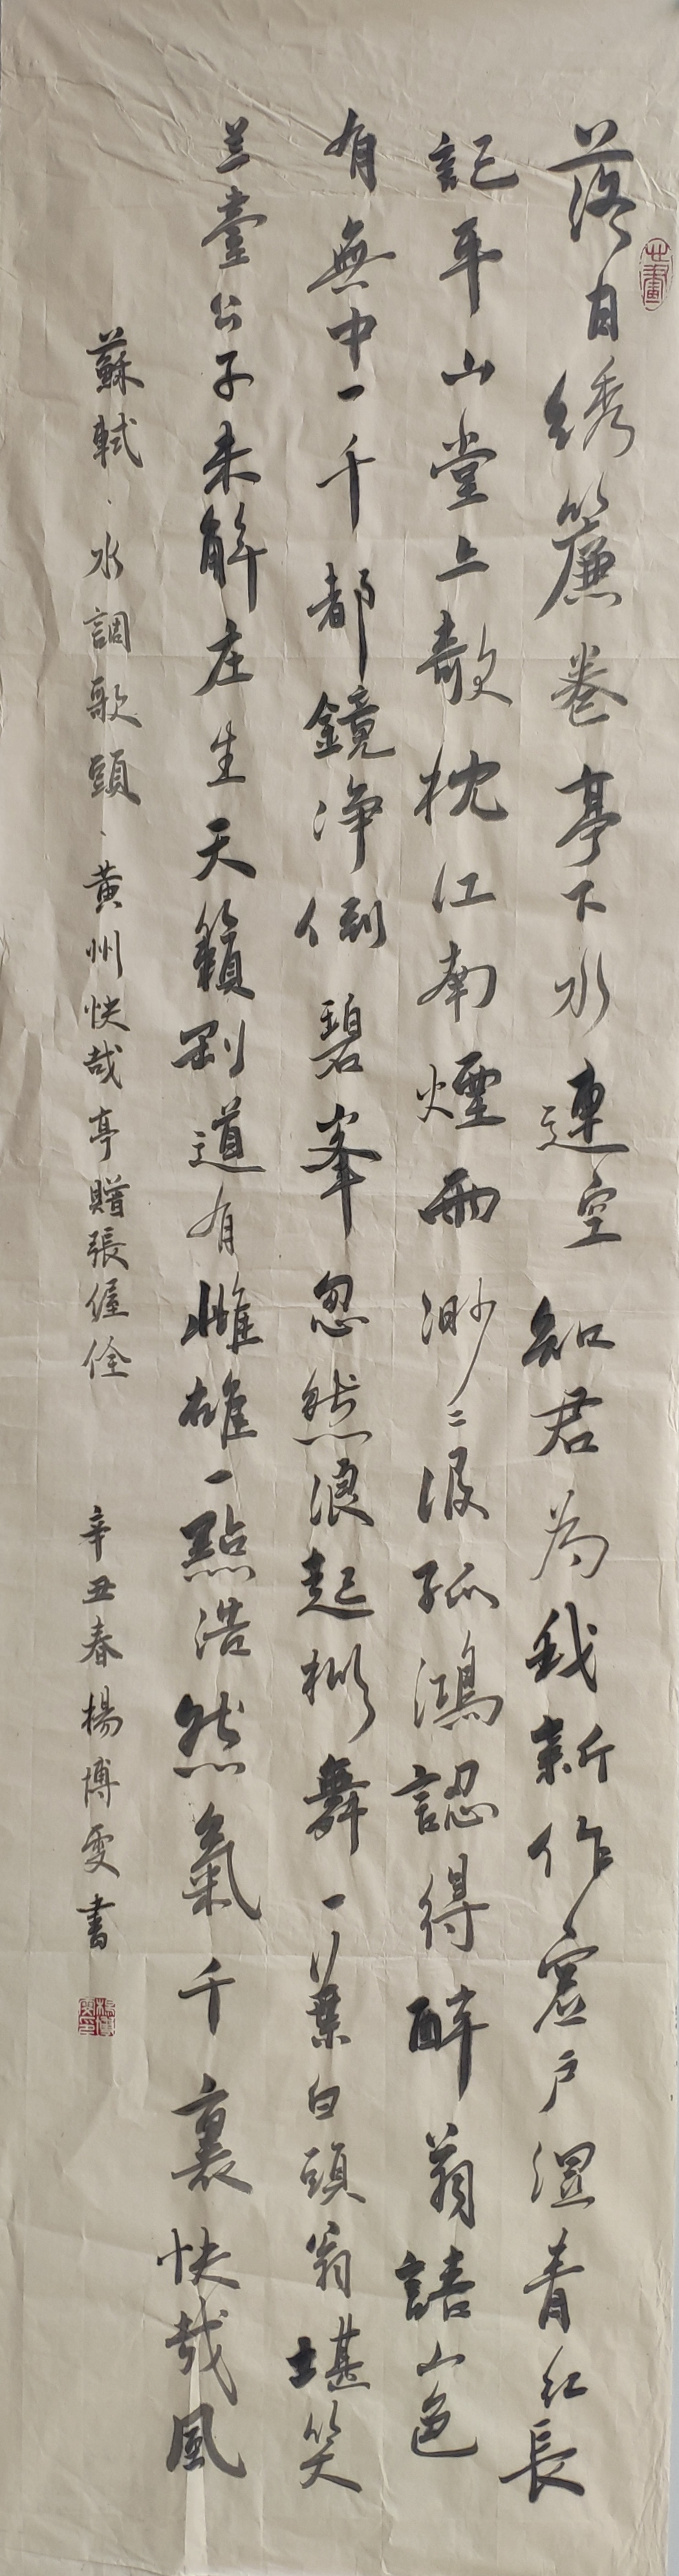 落日绣簾卷亭下水連空知君為我新作窓户湿青红長
記平山堂上敧枕江南煙雨渺〻没孤鴻認得醉翁語山色
有無中一千都鏡净倒碧峯忽然浪起掀舞一葉白頭翁堪笑
兰臺公子未解庄生天籟剛道有雌雄一點浩然氣千裏快哉風
蘇軾、水調歌頭、黄州快哉亭贈張偓佺
辛丑春楊博雯書